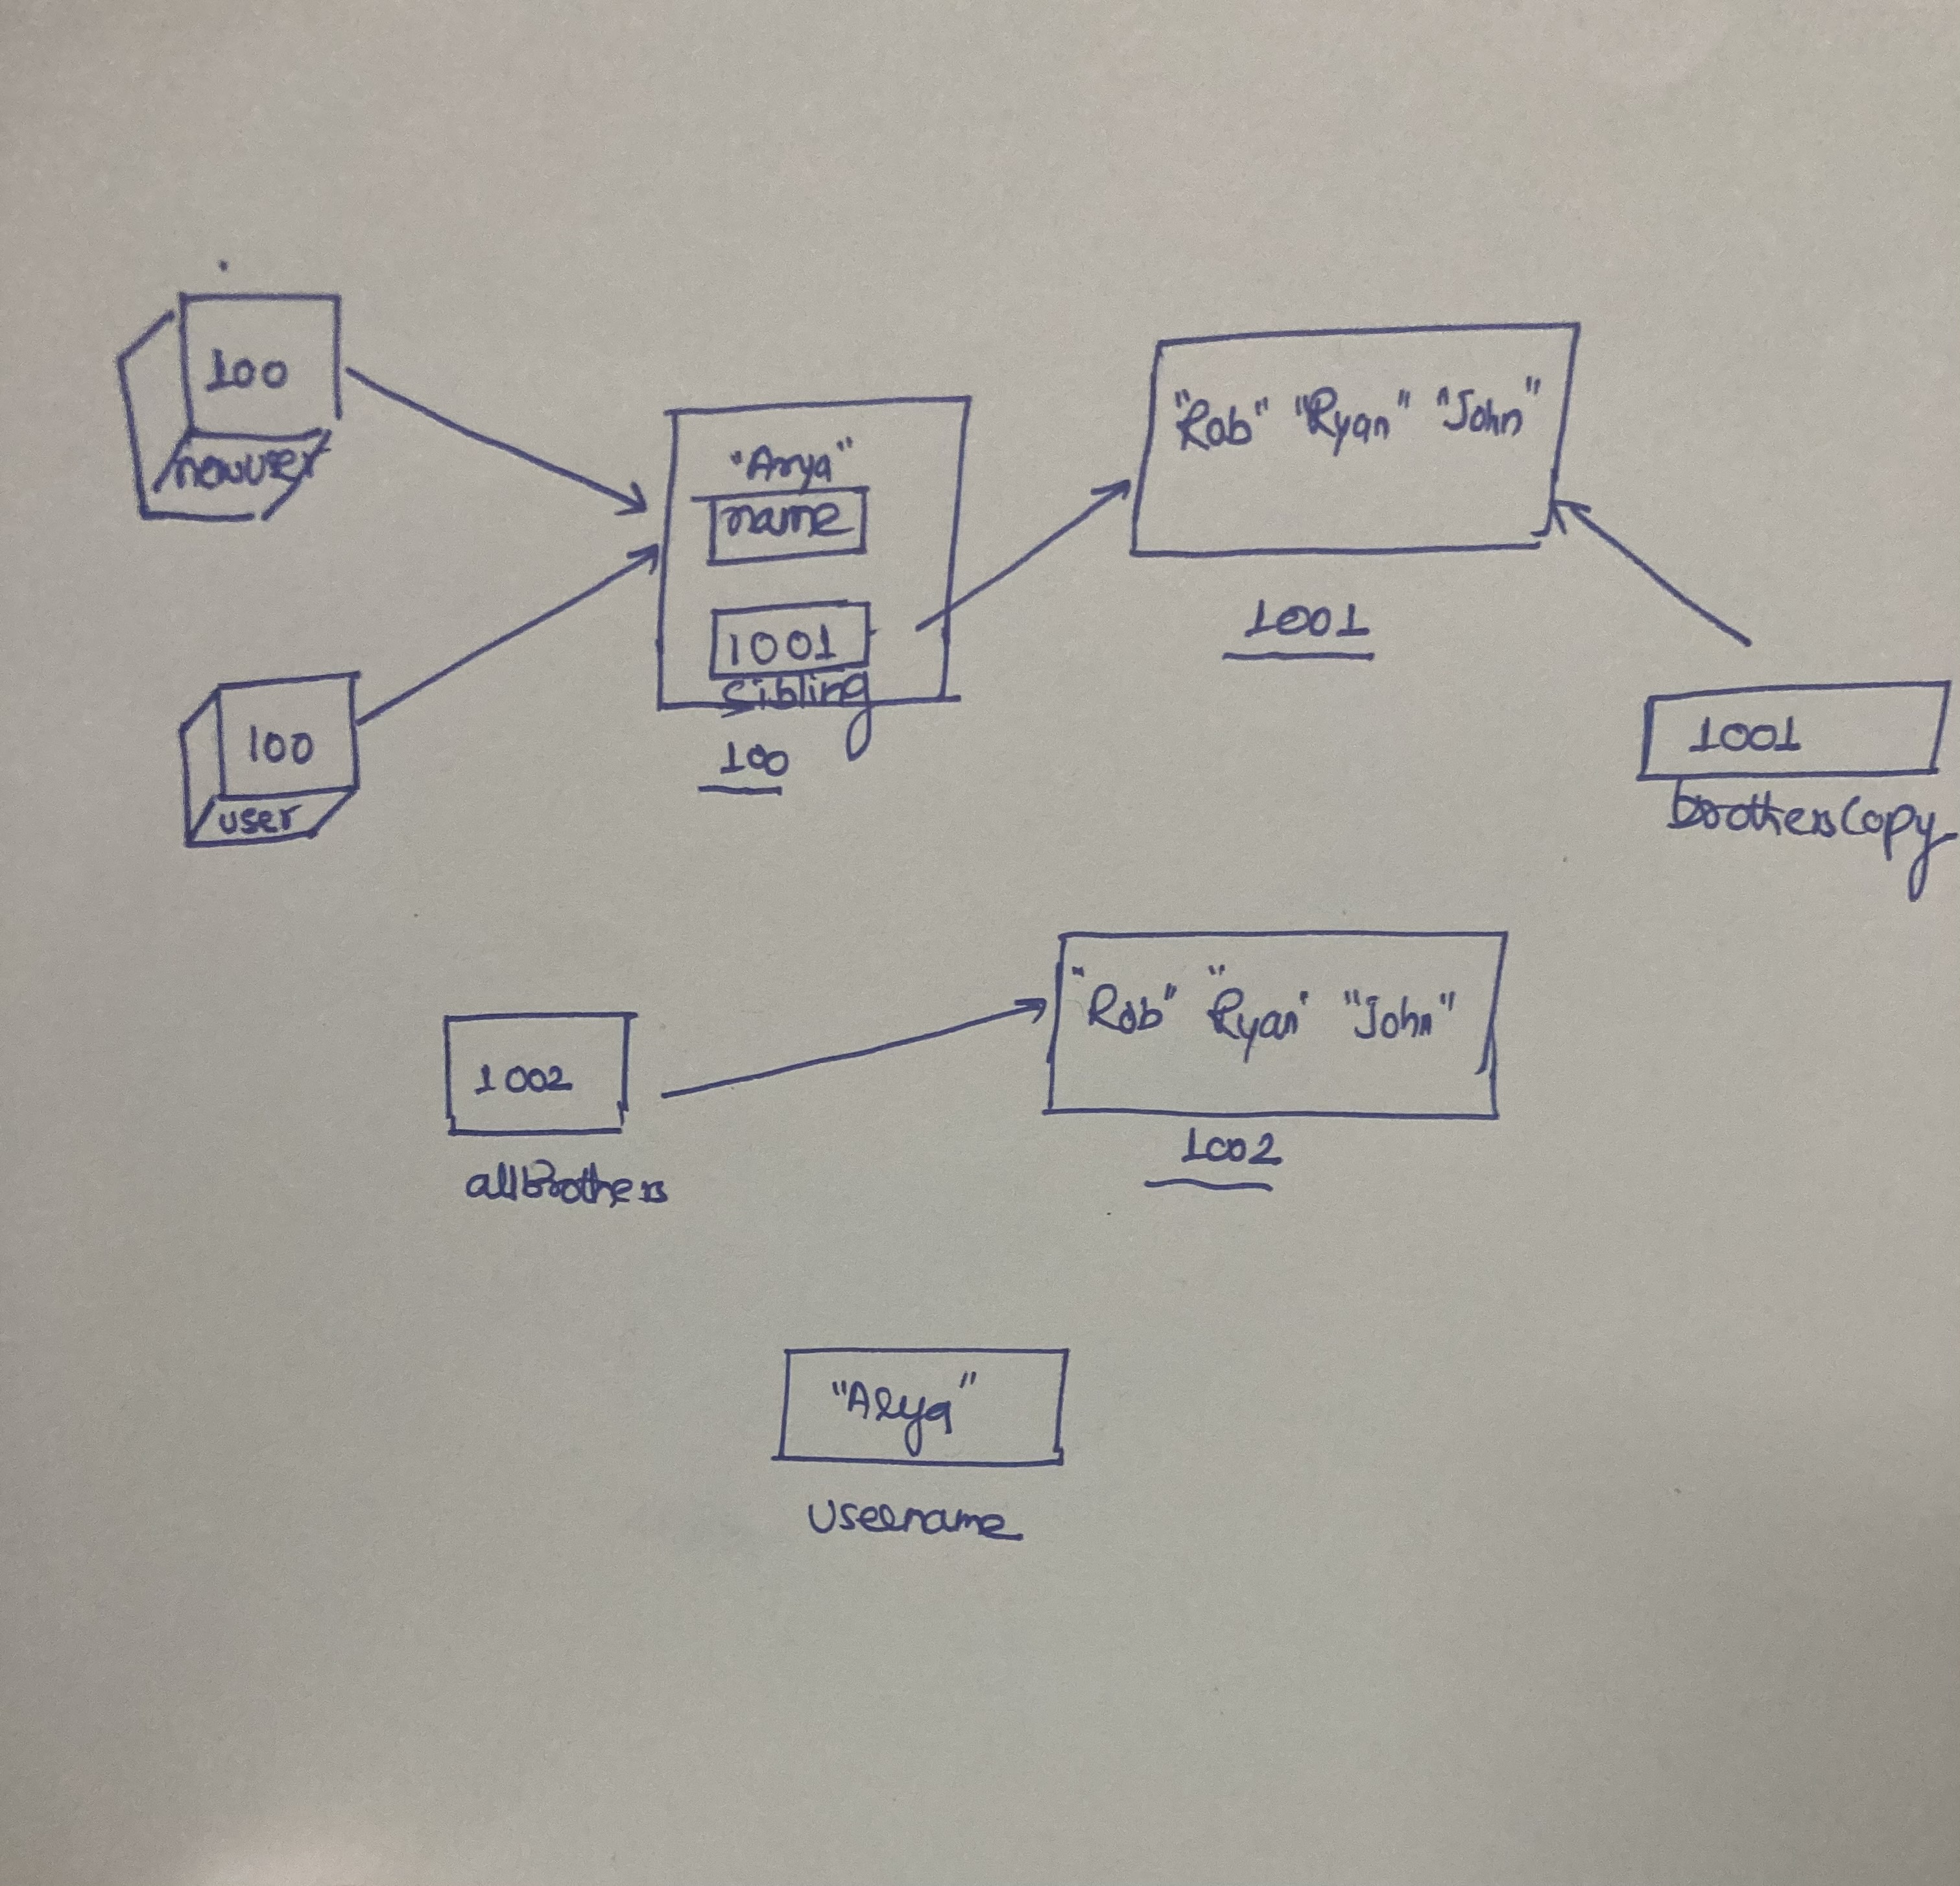 100
newuser
"Arya"
name
1001
sibling
100
"Rob" "Ryan" "John"
1001
100
user
1001
brothersCopy
1002
allBrothers
"Rob" "Ryan" "John"
1002
"Arya"
Username